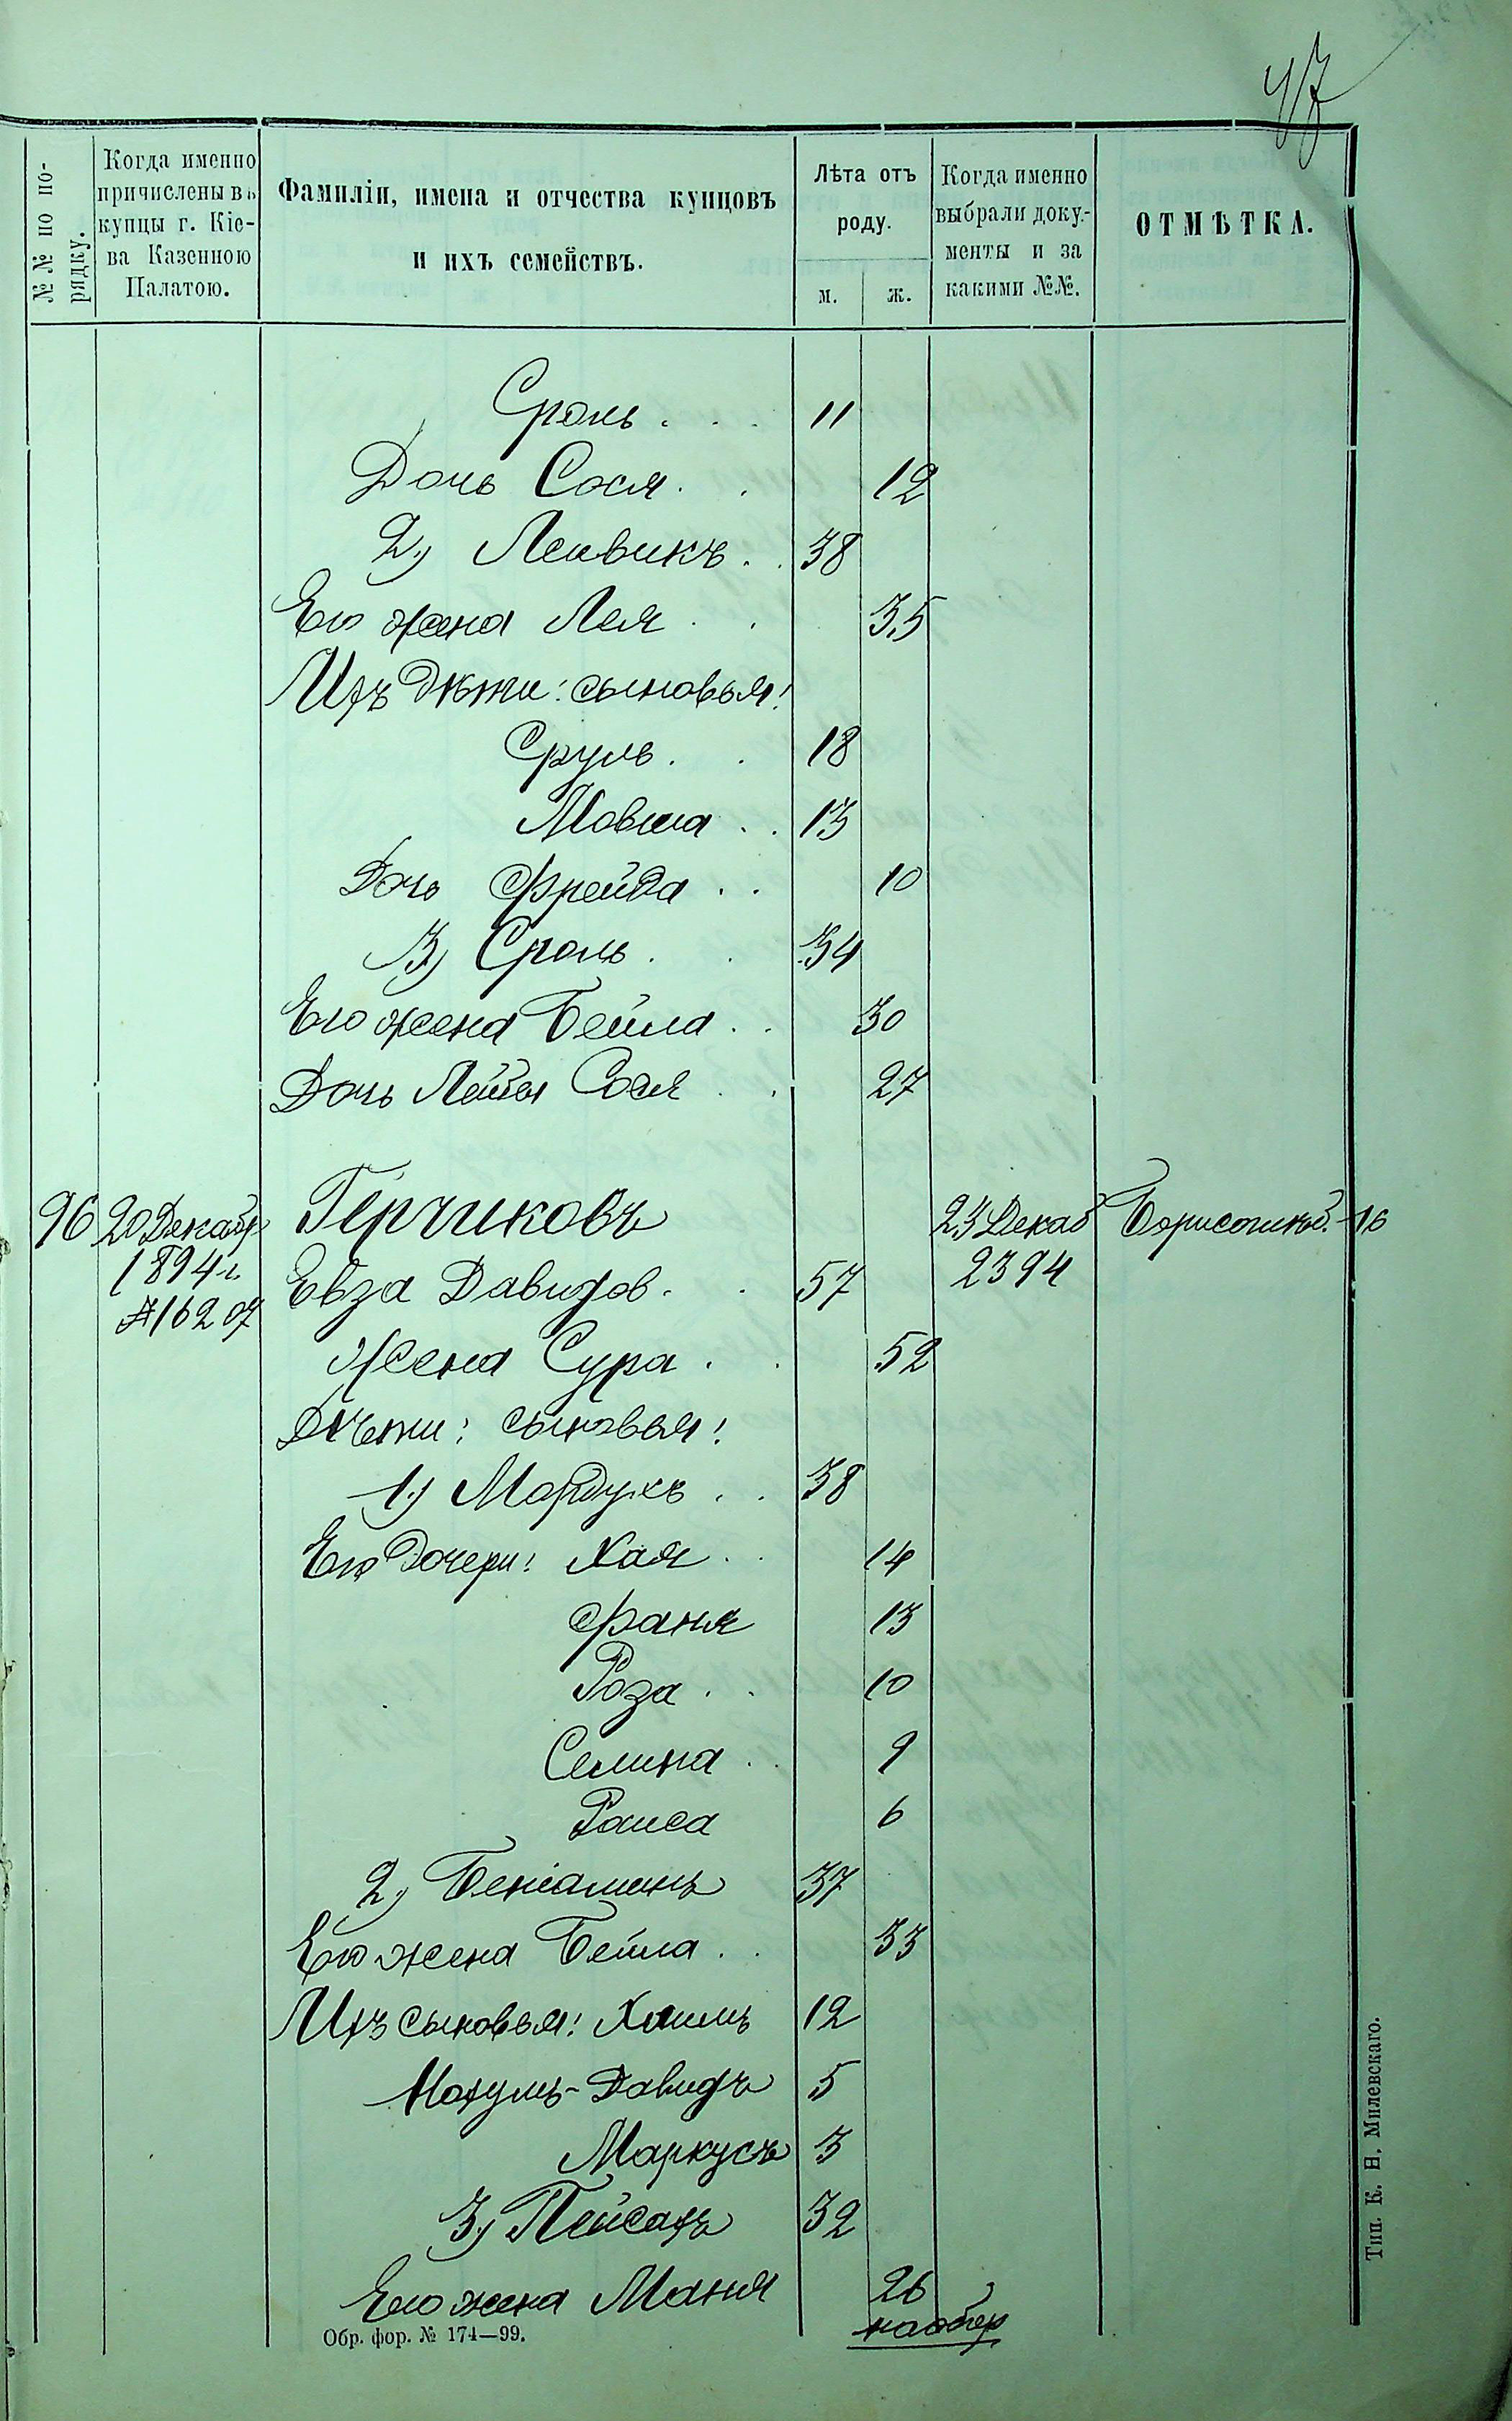 47
№№ по по-
рядку.
Когда именно
причислены въ
купцы г. Кіе-
ва Казенною
Палатою.
Фамиліи, имена и отчества купцовъ
и ихъ семействъ.
Лѣта отъ
роду.
м. ж.
Когда именно
выбрали доку-
менты и за
какими №№.
ОТМѢТКА.
Сроль . . . 11
Дочь Сося . . 12
2) Лейвикъ . . 38
Его жена Лея . . 35
Ихъ дѣти: сыновья:
Сруль . . 18
Мовша . . 13
Дочь Фрейда . . 10
3) Сроль . . 34
Его жена Бейла . . 30
Дочь Лейзи Сося . . 27
96 20 Декабр Герчиковъ 23 Декаб 16
1894 г. Евза Давидов . . 57 2394
№ 16207
Жена Сура . . 52
Дѣти: сыновья:
1) Мордухъ . . 38
Его дочери: Хая . . 14
Фаня 13
Роза . . 10
Селина . . 9
Раиса 6
2) Беніаминъ 37
Его жена Бейла . . 33
Ихъ сыновья: Хаимъ 12
Нохумъ-Давидъ 5
Маркусъ 3
3) Пейсахъ 32
Его жена Маня 26
на обор
Обр. фор. № 174—99.
Тип. К. Н. Милевскаго.